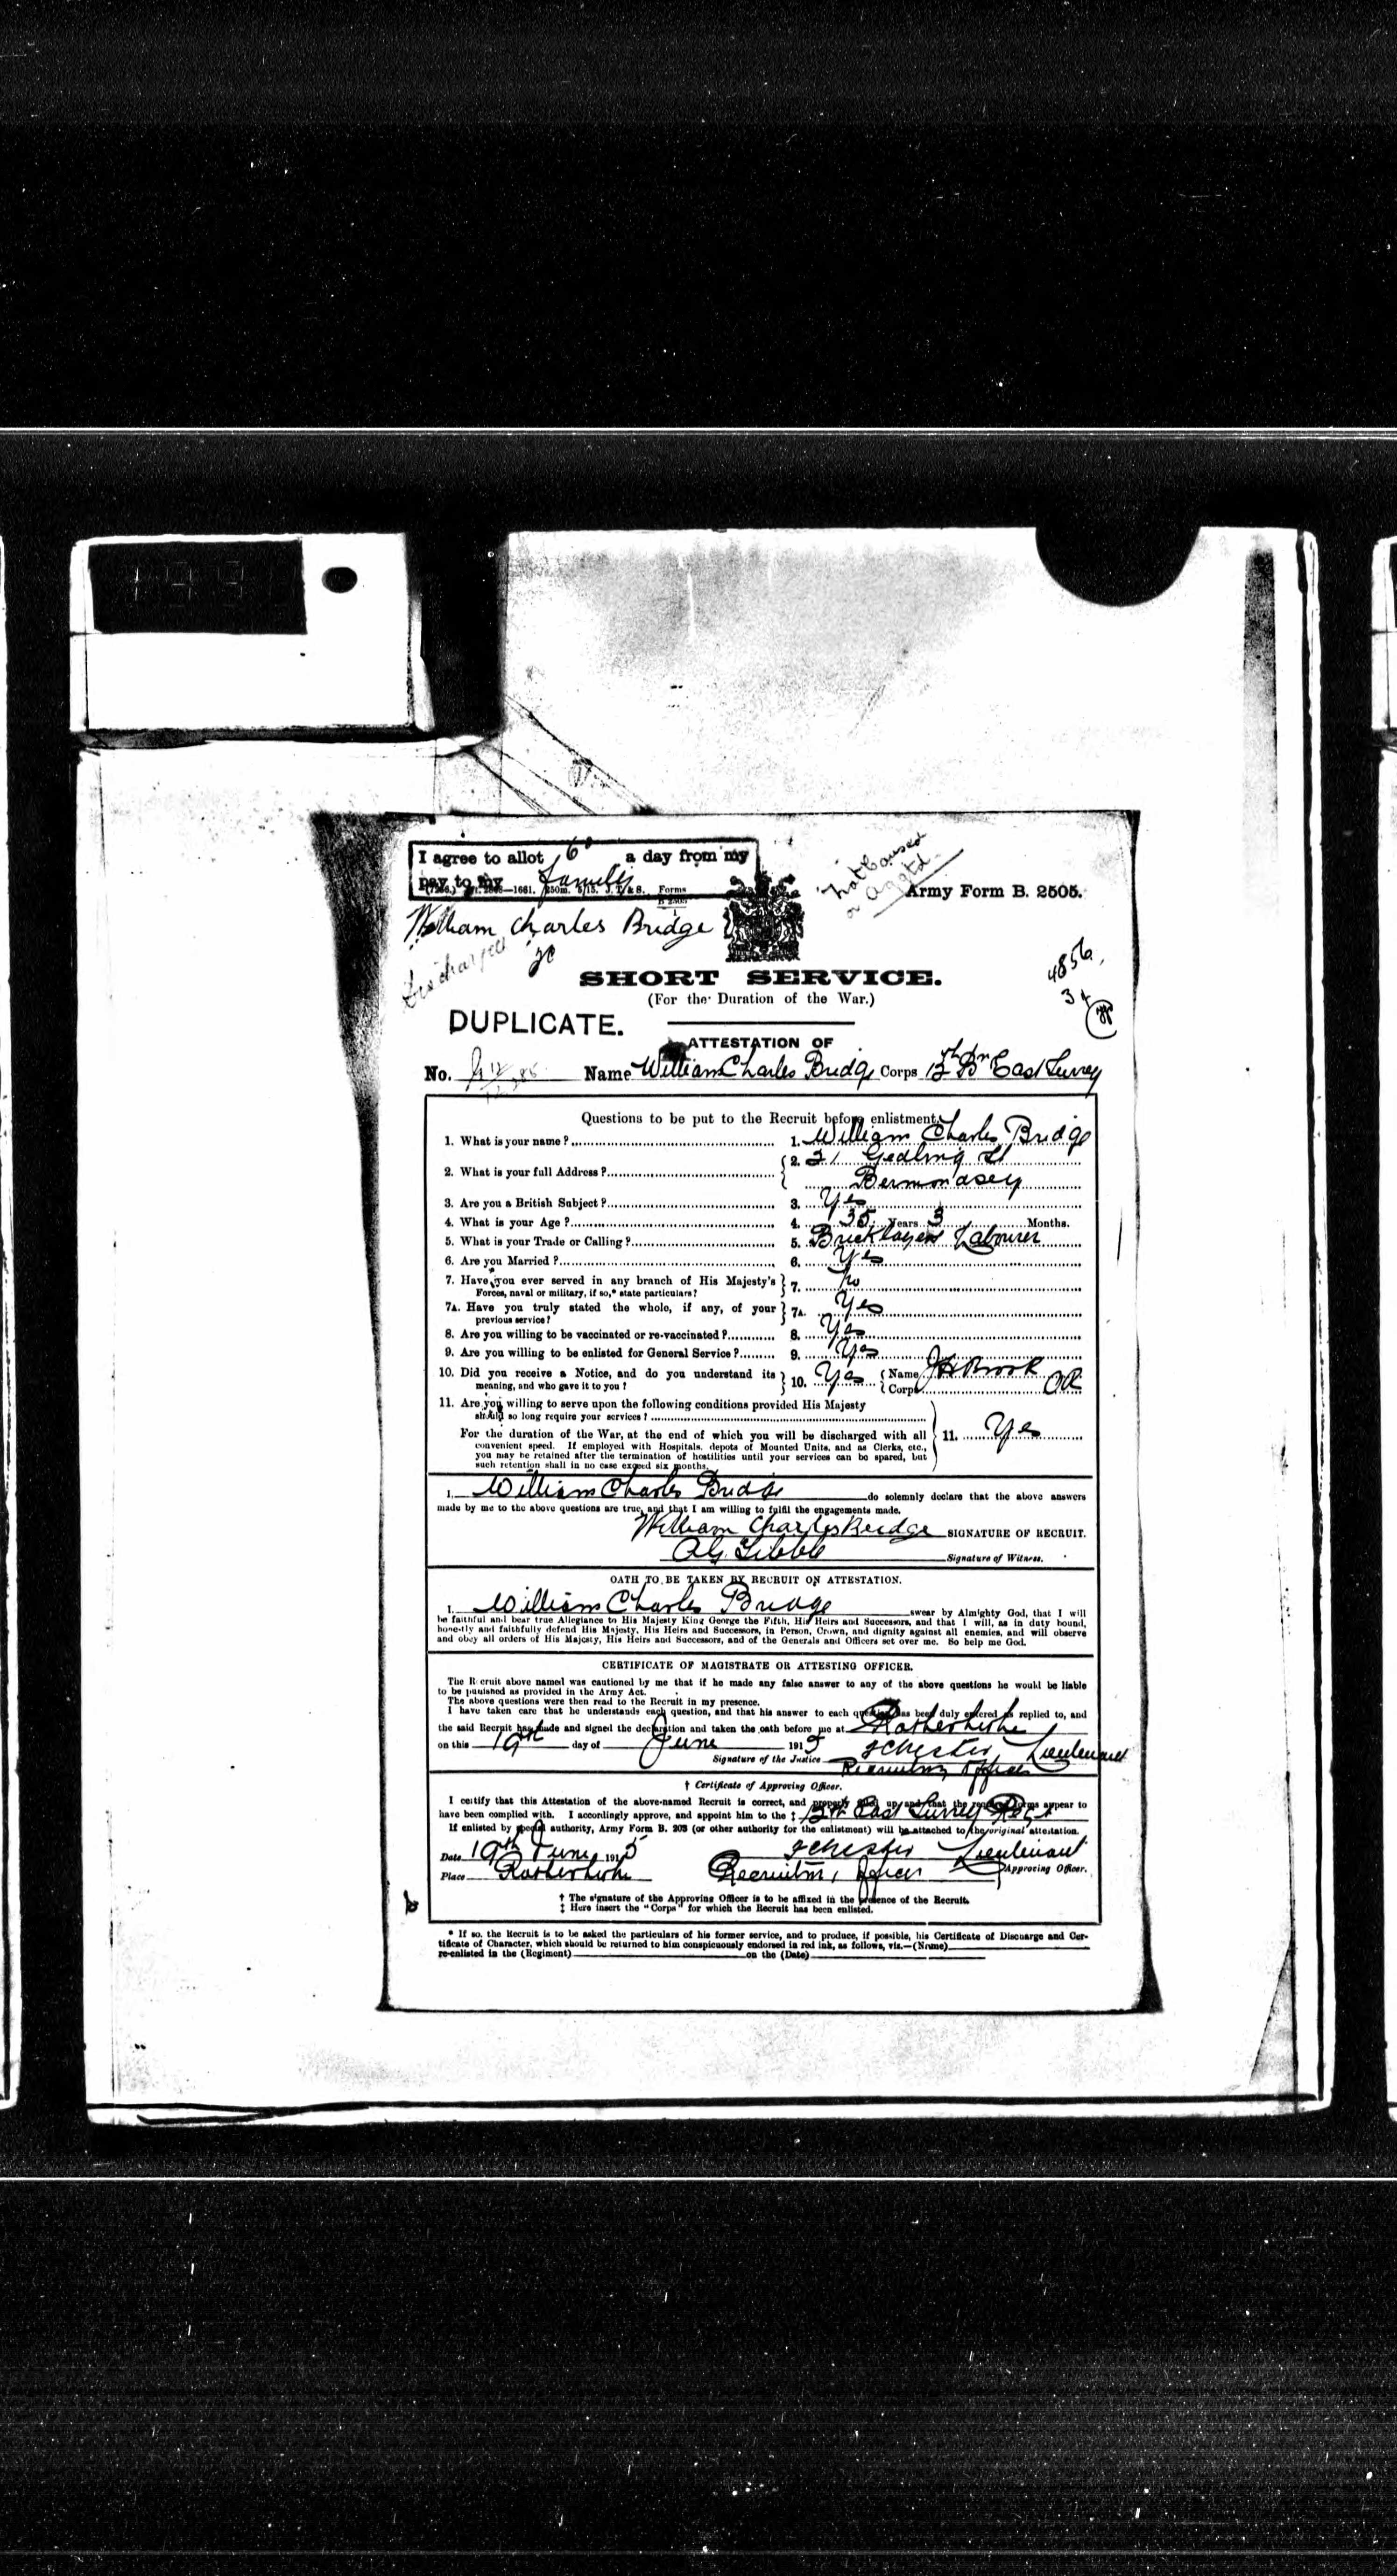 I agree to allot 6d a day from my
pay to my families
—1661. 250m. 5/15. J. T. & S. Forms
B 2505
1
Not Caused
or Aggtd
Army Form B. 2505.
William Charles Bridge
Discharged
4856,
SHORT SERVICE.
(For the Duration of the War.)
DUPLICATE.
ATTESTATION OF
No. Name William Charles Bridge Corps 12th Bn East Surrey
Questions to be put to the Recruit before enlistment.
1. What is your name? 1. William Charles Bridge
2. What is your full Address? 2. 21 Gedling St
Bermondsey
3. Are you a British Subject? 3. Yes
4. What is your Age? 4. 35 Years 3 Months.
5. What is your Trade or Calling? 5. Bricklayers Labourer
6. Are you Married? 6. Yes
7. Have you ever served in any branch of His Majesty's 7. No
Forces, naval or military, if so,* state particulars?
7A. Have you truly stated the whole, if any, of your 7A. Yes
previous service?
8. Are you willing to be vaccinated or re-vaccinated? 8. Yes
9. Are you willing to be enlisted for General Service? 9. Yes
10. Did you receive a Notice, and do you understand its 10. Yes Name J H Brook
meaning, and who gave it to you? Corps OR
11. Are you willing to serve upon the following conditions provided His Majesty
should so long require your services?
For the duration of the War, at the end of which you will be discharged with all 11. Yes
convenient speed. If employed with Hospitals, depots of Mounted Units, and as Clerks, etc.,
you may be retained after the termination of hostilities until your services can be spared, but
such retention shall in no case exceed six months.
I, William Charles Bridge do solemnly declare that the above answers
made by me to the above questions are true, and that I am willing to fulfil the engagements made.
William Charles Bridge SIGNATURE OF RECRUIT.
Signature of Witness.
OATH TO BE TAKEN BY RECRUIT ON ATTESTATION.
I, William Charles Bridge swear by Almighty God, that I will
be faithful and bear true Allegiance to His Majesty King George the Fifth, His Heirs and Successors, and that I will, as in duty bound,
honestly and faithfully defend His Majesty, His Heirs and Successors, in Person, Crown, and dignity against all enemies, and will observe
and obey all orders of His Majesty, His Heirs and Successors, and of the Generals and Officers set over me. So help me God.
CERTIFICATE OF MAGISTRATE OR ATTESTING OFFICER.
The Recruit above named was cautioned by me that if he made any false answer to any of the above questions he would be liable
to be punished as provided in the Army Act.
The above questions were then read to the Recruit in my presence.
I have taken care that he understands each question, and that his answer to each question has been duly entered as replied to, and
the said Recruit has made and signed the declaration and taken the oath before me at Rotherhithe
on this 19th day of June 1915
Signature of the Justice Lieutenant
Recruiting Officer
† Certificate of Approving Officer.
I certify that this Attestation of the above-named Recruit is correct, and properly filled up, and that the required forms appear to
have been complied with. I accordingly approve, and appoint him to the ‡ 12th East Surrey Regt
If enlisted by special authority, Army Form B. 203 (or other authority for the enlistment) will be attached to the original attestation.
Date 19th June 1915 Lieutenant
Place Rotherhithe Recruiting Officer Approving Officer.
† The signature of the Approving Officer is to be affixed in the presence of the Recruit.
‡ Here insert the "Corps" for which the Recruit has been enlisted.
* If so, the Recruit is to be asked the particulars of his former service, and to produce, if possible, his Certificate of Discharge and Cer-
tificate of Character, which should be returned to him conspicuously endorsed in red ink, as follows, viz.—(Name)
re-enlisted in the (Regiment) on the (Date)